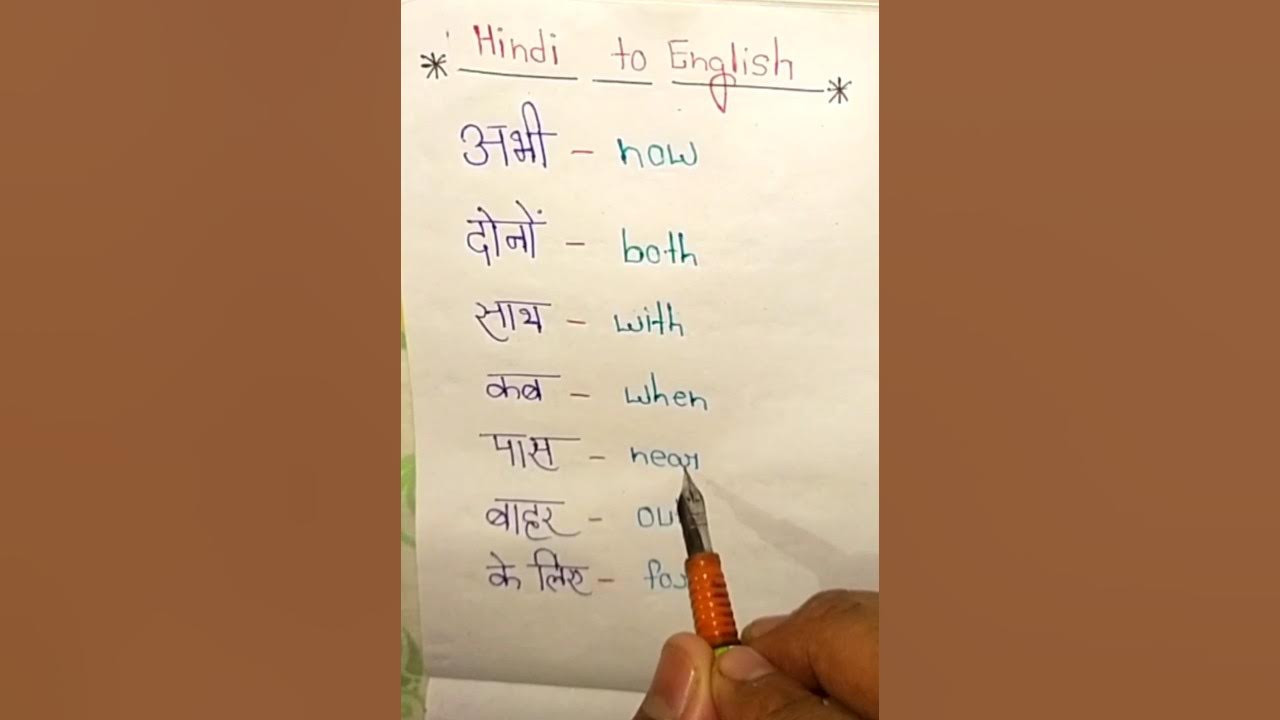 Hindi to English
अभी - now
दोनों - both
साथ - with
कब - when
पास - near
बाहर -
के लिए -